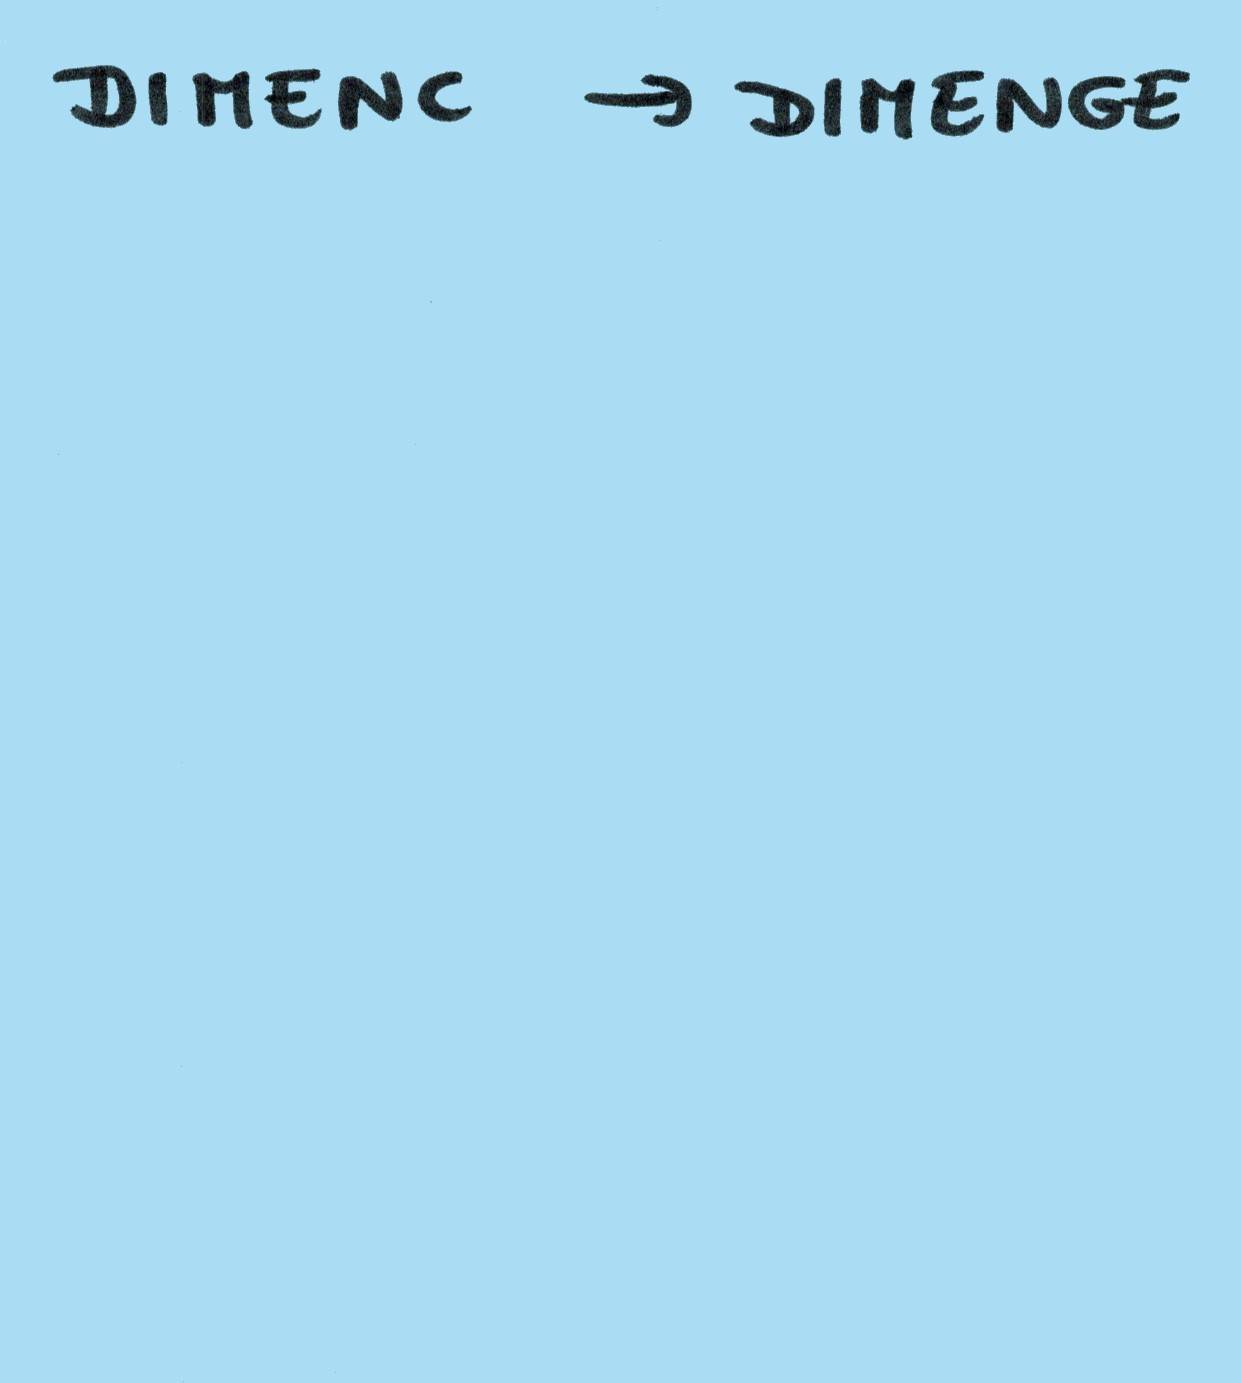 DIMENC → DIMENGE